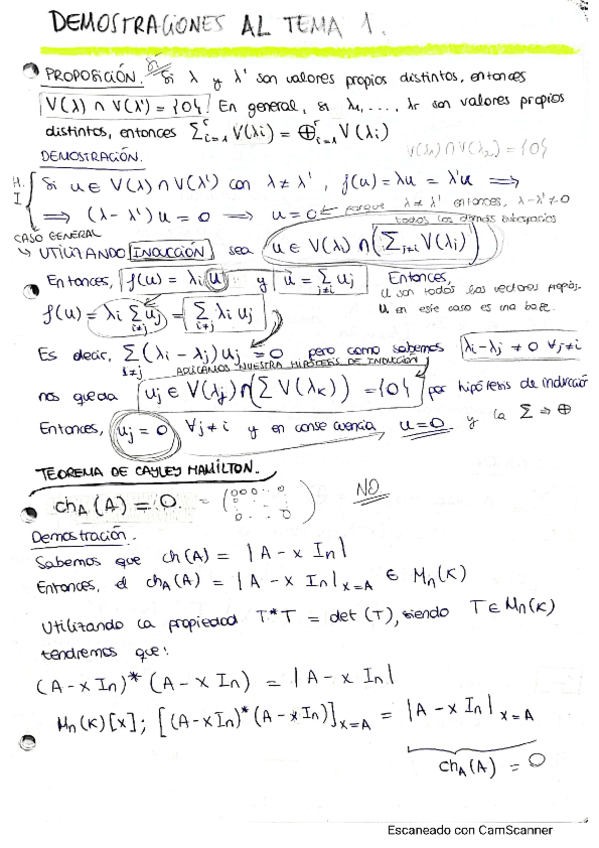 DEMOSTRACIONES AL TEMA 1.
PROPOSICIÓN. Si λ y λ' son valores propios distintos, entonces
V(λ) ∩ V(λ') = {0}. En general, si λ1, ..., λr son valores propios
distintos, entonces Σ_{i=1}^{r} V(λi) = ⊕_{i=1}^{r} V(λi)
V(λ1) ∩ V(λ2) = {0}
DEMOSTRACIÓN.
H.I { Si u ∈ V(λ) ∩ V(λ') con λ ≠ λ', f(u) = λu = λ'u ⟹
⟹ (λ - λ')u = 0 ⟹ u = 0 ← porque λ ≠ λ' entonces, λ - λ' ≠ 0
todos los demás subespacios
CASO GENERAL
↳ UTILIZANDO INDUCCIÓN sea u ∈ V(λi) ∩ (Σ_{j≠i} V(λj))
Entonces, f(u) = λi u y u = Σ_{j≠i} uj Entonces,
u son todos los vectores propios.
u en este caso es una base.
f(u) = λi Σ_{i≠j} uj = Σ_{i≠j} λi uj
Es decir, Σ_{i≠j} (λi - λj) uj = 0 pero como sabemos λi - λj ≠ 0 ∀j≠i
APLICAMOS NUESTRA HIPÓTESIS DE INDUCCIÓN
nos queda uj ∈ V(λj) ∩ (Σ V(λk)) = {0} por hipótesis de inducción
Entonces, uj = 0 ∀j≠i y en consecuencia u = 0 y la Σ ⇒ ⊕
TEOREMA DE CAYLEY HAMILTON.
chA(A) = 0. = (0 0 0 ... 0 ... 0) NO
Demostración.
Sabemos que ch(A) = |A - x In|
Entonces, el chA(A) = |A - x In|_{x=A} ∈ Mn(K)
Utilizando la propiedad T*T = det(T), siendo T ∈ Mn(K)
tendremos que:
(A - x In)* (A - x In) = |A - x In|
Mn(K)[x]; [(A - x In)* (A - x In)]_{x=A} = |A - x In|_{x=A}
chA(A) = 0
Escaneado con CamScanner